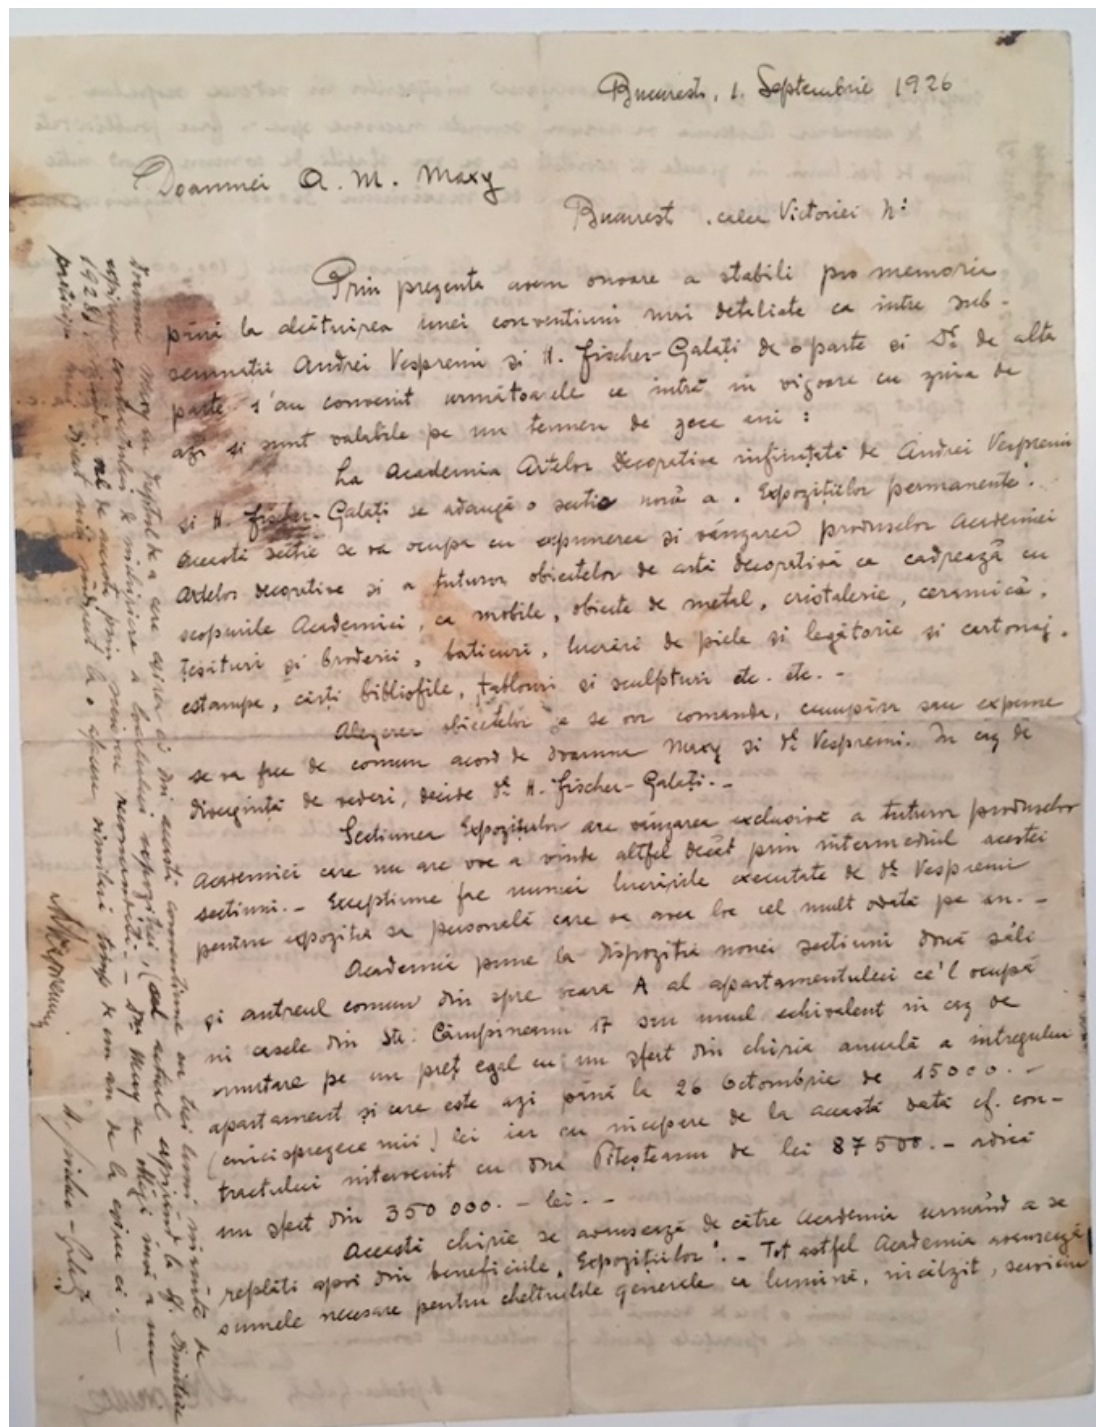 Bucuresti, 1. Septembrie 1926
Doamnei A. M. Maxy
Bucuresti calea Victoriei Nº
Prin prezenta avem onoare a stabili pro memorie
pină la alcătuirea unei conventiuni mai detaliate ca intre sub-
semnatii Andrei Vespremi si H. Fischer-Galați de o parte si Dv. de alta
parte s'au convenit următoarele ce intră in vigoare cu ziua de
azi si sunt valabile pe un termen de zece ani :
La Academia Artelor Decorative infiintată de Andrei Vespremi
si H. Fischer-Galați se adaugă o sectie nouă a "Expozițiilor permanente".
Această sectie se va ocupa cu expunerea si vânzarea produselor Academiei
Artelor decorative si a tuturor obiectelor de artă decorativă ce cadrează cu
scopurile Academiei, ca mobile, obiecte de metal, cristalerie, ceramică,
țesături și broderii, baticuri, lucrări de piele si legătorie si cartonaj,
estampe, cărți bibliofile, tablouri si sculpturi etc. etc. -
Alegerea obiectelor ce se vor comanda, cumpăra sau expune
se va face de comun acord de doamna Maxy si Dl Vespremi. In caz de
divergintă de vederi, decide Dl H. Fischer-Galați. -
Sectiunea Expozitiilor are vânzarea exclusivă a tuturor produselor
Academiei care nu are voe a vinde altfel decât prin intermediul acestei
sectiuni. - Exceptiune fac numai lucrările executate de Dl Vespremi
pentru expozitia sa personală care va avea loc cel mult odată pe an. -
Academia pune la dispozitia nouei sectiuni două săli
și antreul comun din spre scara A al apartamentului ce'l ocupă
in casele din Str. Câmpineanu 17 sau unul echivalent in caz de
mutare pe un preț egal cu un sfert din chiria anuală a intregului
apartament și care este azi până la 26 Octombrie de 15000. -
(cincisprezece mii) lei iar cu incepere de la această dată cf. con-
tractului intervenit cu Dna Piteșteanu de lei 87500. - adică
un sfert din 350 000. - lei. -
Această chirie se avansează de către Academie urmând a se
replăti apoi din beneficiile "Expozițiilor". - Tot astfel Academia avansează
sumele necesare pentru cheltuelile generale ca lumină, incălzit, serviciu
Doamna Maxy are dreptul de a cere eșirea ei din această conventiune cu trei luni inainte de
expirarea contractului de inchiriere a localului expoziției, (cel actual expirând la Sf. Dimitrie
1928) de aceasta prin scrisoare recomandată. - Dna Maxy se obligă insă a nu
participa nici direct nici indirect la o afacere similară timp de un an de la eșirea ei. -
A Vespremi H. Fischer-Galați